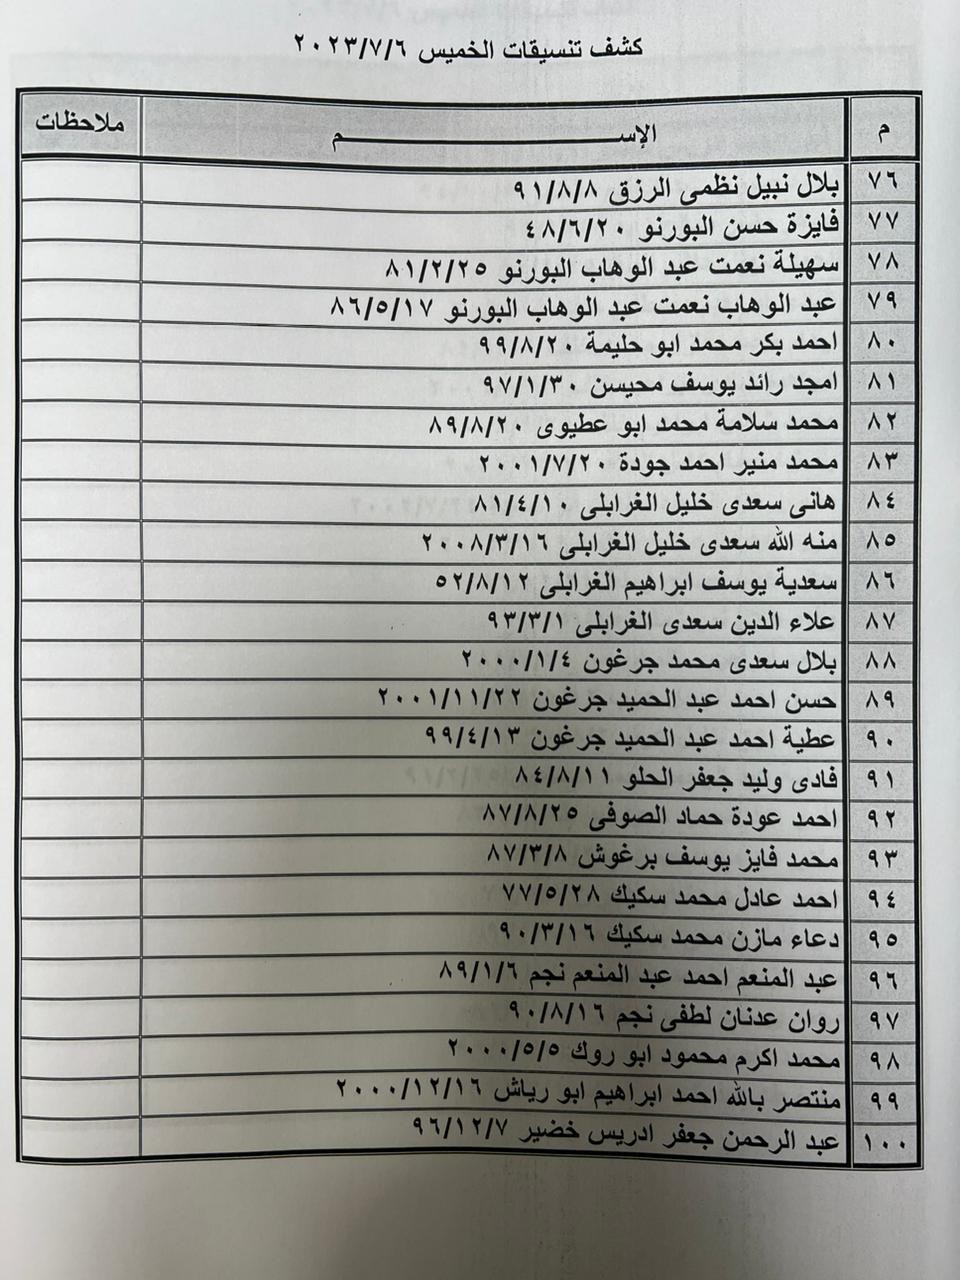 كشف تنسيقات الخميس ٢٠٢٣/٧/٦
م الإســـــــــم ملاحظات
٧٦ بلال نبيل نظمى الرزق ٩١/٨/٨
٧٧ فايزة حسن البورنو ٤٨/٦/٢٠
٧٨ سهيلة نعمت عبد الوهاب البورنو ٨١/٢/٢٥
٧٩ عبد الوهاب نعمت عبد الوهاب البورنو ٨٦/٥/١٧
٨٠ احمد بكر محمد ابو حليمة ٩٩/٨/٢٠
٨١ امجد رائد يوسف محيسن ٩٧/١/٣٠
٨٢ محمد سلامة محمد ابو عطيوى ٨٩/٨/٢٠
٨٣ محمد منير احمد جودة ٢٠٠١/٧/٢٠
٨٤ هانى سعدى خليل الغرابلى ٨١/٤/١٠
٨٥ منه الله سعدى خليل الغرابلى ٢٠٠٨/٣/١٦
٨٦ سعدية يوسف ابراهيم الغرابلى ٥٢/٨/١٢
٨٧ علاء الدين سعدى الغرابلى ٩٣/٣/١
٨٨ بلال سعدى محمد جرغون ٢٠٠٠/١/٤
٨٩ حسن احمد عبد الحميد جرغون ٢٠٠١/١١/٢٢
٩٠ عطية احمد عبد الحميد جرغون ٩٩/٤/١٣
٩١ فادى وليد جعفر الحلو ٨٤/٨/١١
٩٢ احمد عودة حماد الصوفى ٨٧/٨/٢٥
٩٣ محمد فايز يوسف برغوش ٨٧/٣/٨
٩٤ احمد عادل محمد سكيك ٧٧/٥/٢٨
٩٥ دعاء مازن محمد سكيك ٩٠/٣/١٦
٩٦ عبد المنعم احمد عبد المنعم نجم ٨٩/١/٦
٩٧ روان عدنان لطفى نجم ٩٠/٨/١٦
٩٨ محمد اكرم محمود ابو روك ٢٠٠٠/٥/٥
٩٩ منتصر بالله احمد ابراهيم ابو رياش ٢٠٠٠/١٢/١٦
١٠٠ عبد الرحمن جعفر ادريس خضير ٩٦/١٢/٧